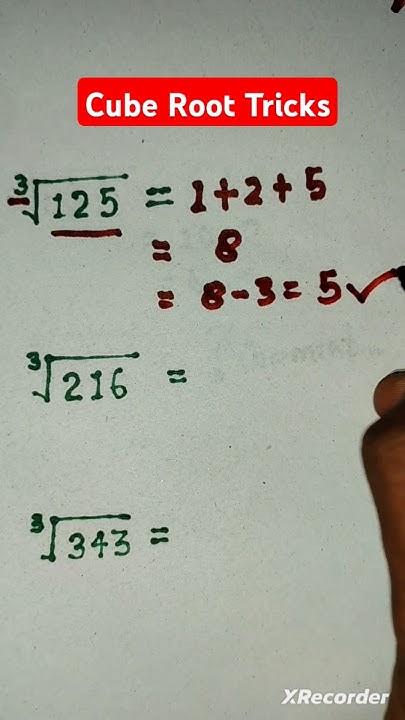 Cube Root Tricks
³√125 = 1+2+5
= 8
= 8-3= 5✓
³√216 =
³√343 =
XRecorder